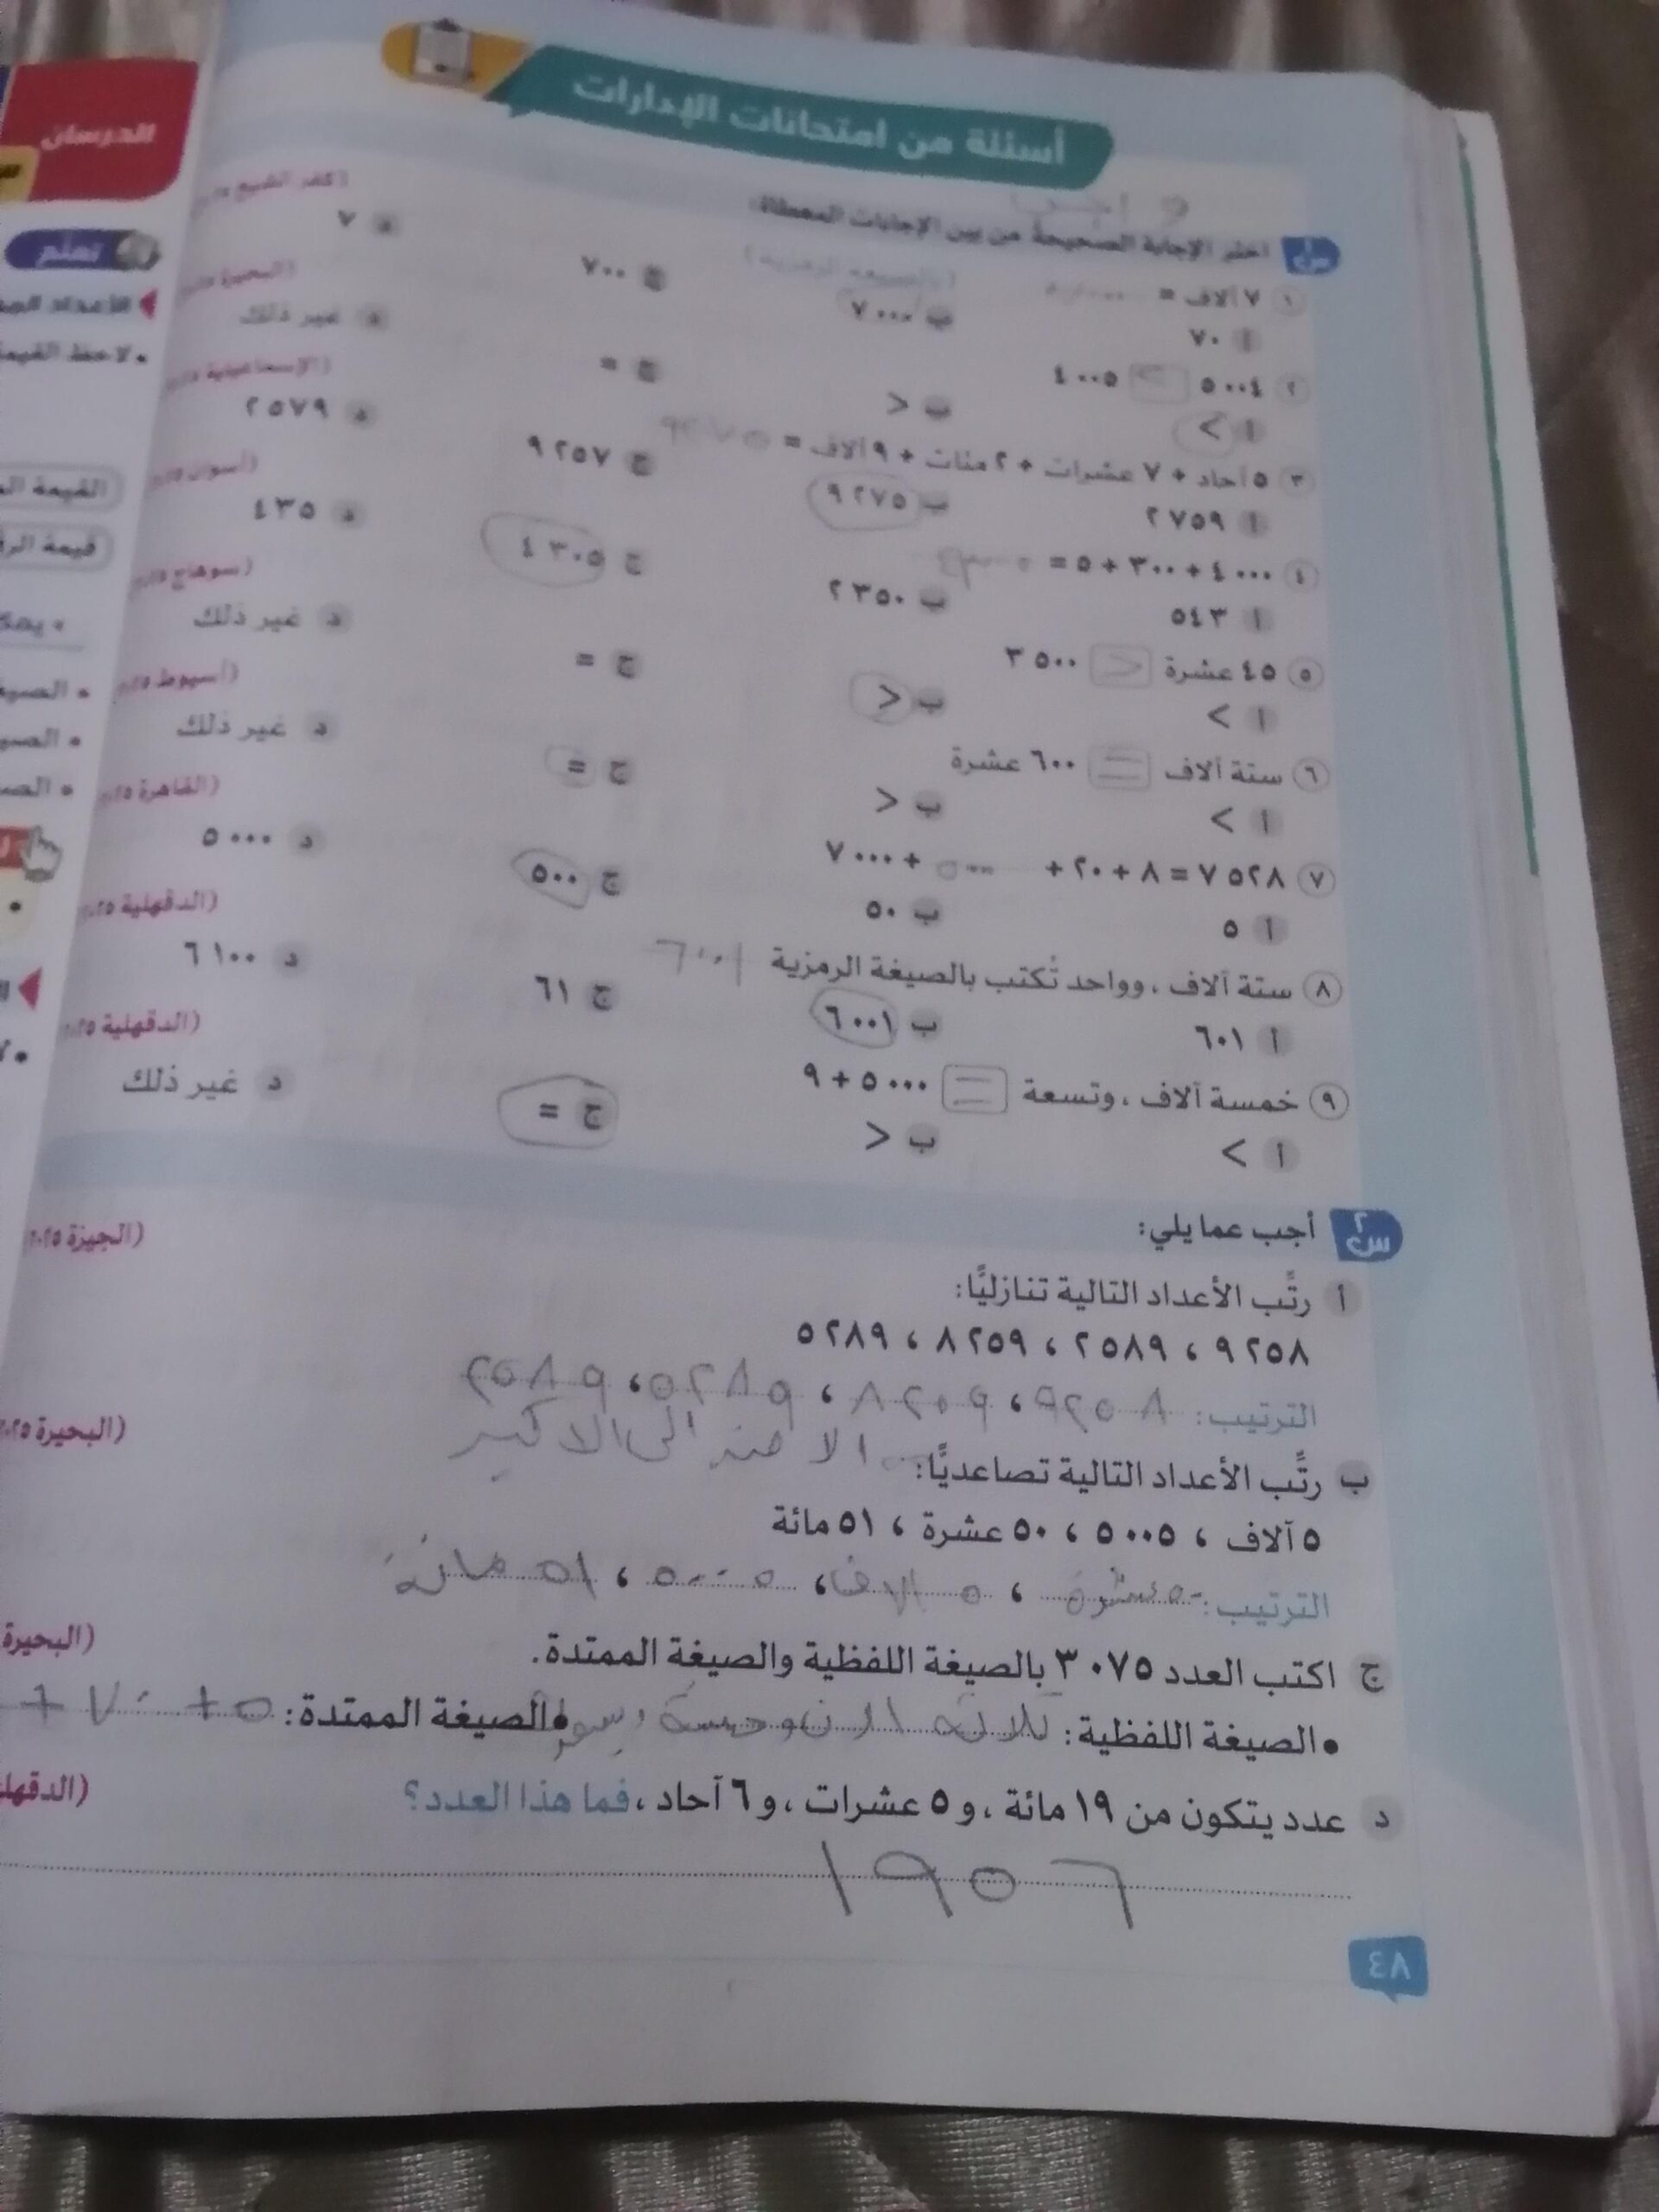 أسئلة من امتحانات الإدارات
س١ اختر الإجابة الصحيحة من بين الإجابات المعطاة:
(كفر الشيخ ٢٠٢٥)
١ ٧ آلاف =
(بالصيغة الرمزية)
أ ٧٠ ب ٧٠٠٠ ج ٧٠٠ د ٧
(البحيرة ٢٠٢٥)
٢ ٥٠٠٤ > ٤٠٠٥
أ > ب < ج = د غير ذلك
(الإسماعيلية ٢٠٢٥)
٣ ٥ آحاد + ٧ عشرات + ٢ مئات + ٩ آلاف = ٩٢٧٥
أ ٢٧٥٩ ب ٩٢٧٥ ج ٩٢٥٧ د ٢٥٧٩
(أسوان ٢٠٢٥)
٤ ٤٠٠٠ + ٣٠٠ + ٥ = ٤٣٠٥
أ ٥٤٣ ب ٢٣٥٠ ج ٤٣٠٥ د ٤٣٥
(سوهاج ٢٠٢٥)
٥ ٤٥ عشرة < ٣٥٠٠
أ > ب < ج = د غير ذلك
(أسيوط ٢٠٢٥)
٦ ستة آلاف = ٦٠٠ عشرة
أ > ب < ج = د غير ذلك
(القاهرة ٢٠٢٥)
٧ ٧٥٢٨ = ٨ + ٢٠ + ٥٠٠ + ٧٠٠٠
أ ٥ ب ٥٠ ج ٥٠٠ د ٥٠٠٠
(الدقهلية ٢٠٢٥)
٨ ستة آلاف ، وواحد تُكتب بالصيغة الرمزية ٦٠٠١
أ ٦٠١ ب ٦٠٠١ ج ٦١ د ٦١٠٠
(الدقهلية ٢٠٢٥)
٩ خمسة آلاف ، وتسعة = ٥٠٠٠ + ٩
أ > ب < ج = د غير ذلك
س٢ أجب عما يلي:
أ رتِّب الأعداد التالية تنازليًّا: (الجيزة ٢٠٢٥
٩٢٥٨ ، ٢٥٨٩ ، ٨٢٥٩ ، ٥٢٨٩
الترتيب: ٩٢٥٨ ، ٨٢٥٩ ، ٥٢٨٩ ، ٢٥٨٩
ب رتِّب الأعداد التالية تصاعديًّا: الى الاكبر (البحيرة ٢٠٢٥
٥ آلاف ، ٥٠٠٥ ، ٥٠ عشرة ، ٥١ مائة
الترتيب: ٥٠ عشرة ، ٥ الاف ، ٥٠٠٥ ، ٥١ مائة
ج اكتب العدد ٣٠٧٥ بالصيغة اللفظية والصيغة الممتدة. (البحيرة
• الصيغة اللفظية: ثلاثة وخمسة • الصيغة الممتدة: ٥ + ٧٠ +
د عدد يتكون من ١٩ مائة ، و ٥ عشرات ، و ٦ آحاد ، فما هذا العدد؟ (الدقهل
١٩٥٦
٤٨
الدرسان
تعلَّم
الأعداد
• لاحظ
القيمة
قيمة